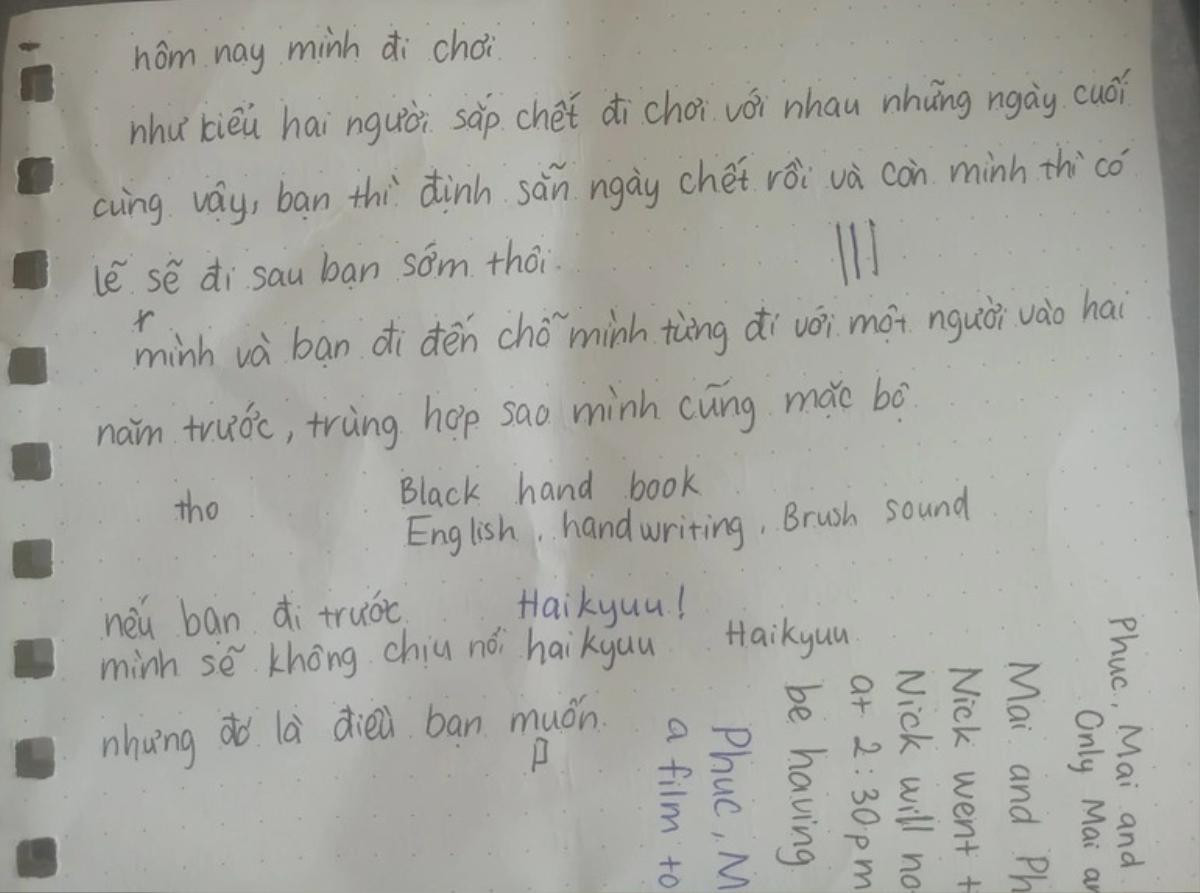 hôm nay mình đi chơi
như kiểu hai người sắp chết đi chơi với nhau những ngày cuối
cùng vậy, bạn thì định sẵn ngày chết rồi và còn mình thì có
lẽ sẽ đi sau bạn sớm thôi.
r
mình và bạn đi đến chỗ mình từng đi với một người vào hai
năm trước, trùng hợp sao mình cũng mặc bộ
tho
Black hand book
English, handwriting, Brush sound
nếu bạn đi trước
Haikyuu!
mình sẽ không chịu nổi haikyuu
Haikyuu
nhưng đó là điều bạn muốn.
Phuc, Mai and
Only Mai a
Mai and Ph
Nick went t
Nick will no
at 2:30pm
be having
Phuc, M
a film to